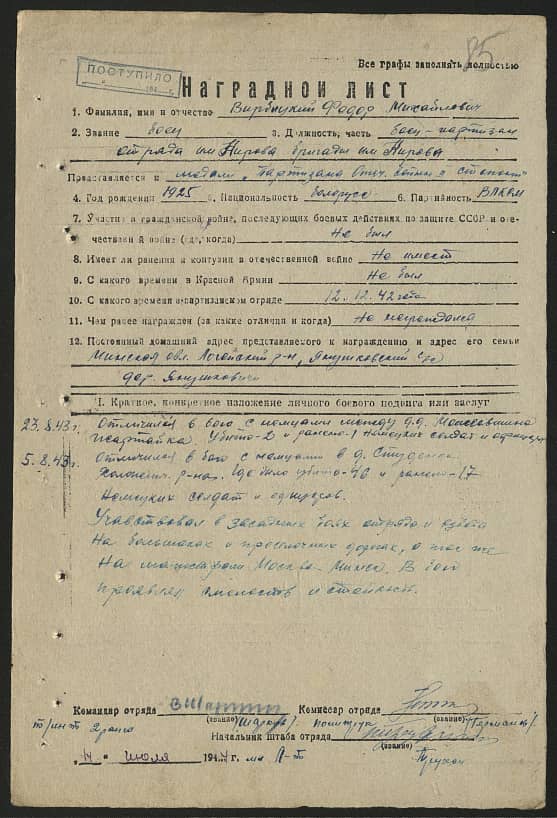 85
Все графы заполнять полностью
ПОСТУПИЛО
Наградной лист
1. Фамилия, имя и отчество Вирбицкий Федор Михайлович
2. Звание боец 3. Должность, часть боец-партизан
отряда им Кирова бригады им Кирова
Представляется к медали "Партизана Отеч. войны II степени"
4. Год рождения 1925 5. Национальность белорус 6. Партийность ВЛКСМ
7. Участие в гражданской войне, последующих боевых действиях по защите СССР и оте-
чественной войне (где, когда) Не был
8. Имеет ли ранения и контузии в отечественной войне Не имеет
9. С какого времени в Красной Армии Не был
10. С какого времени в партизанском отряде 12.12.42 года
11. Чем ранее награжден (за какие отличия и когда) Не награждался
12. Постоянный домашний адрес представляемого к награждению и адрес его семьи
Минская обл. Логойский р-н, Янушковский с/с
дер. Янушковичи
I. Краткое, конкретное изложение личного боевого подвига или заслуг
23.8.43 г. Отличился в бою с немцами между д.д.
Убито-2 и ранено-1 немецких солдат и
5.8.43 г. Отличился в бою с немцами в д. Студенка
р-на. Где было убито-46 и ранено-17
Немецких солдат и офицеров.
Участвовал в засадных боях отряда и взвода
На большаках и проселочных дорогах, а так же
На магистрали Москва-Минск. В бою
проявлял смелость и стойкость.
Командир отряда Комиссар отряда
(звание) политрук (звание)
Начальник штаба отряда
(звание)
"4" июля 1944 г.